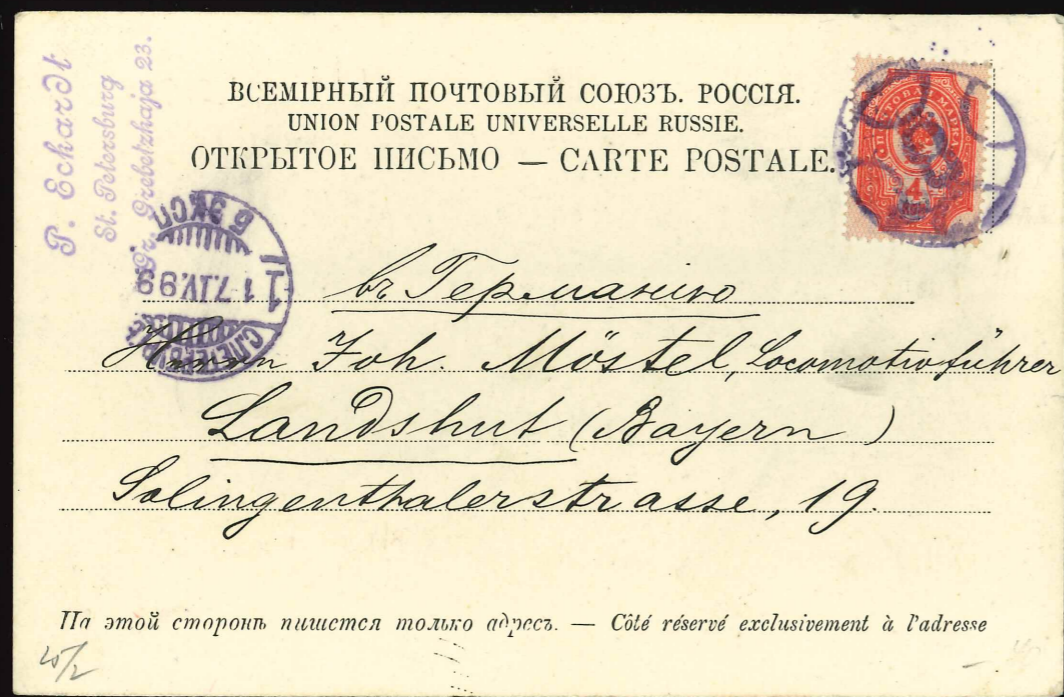 P. Eckardt
St. Petersburg
Gr. Grebetzkaja 23.
ВСЕМІРНЫЙ ПОЧТОВЫЙ СОЮЗЪ. РОССІЯ.
UNION POSTALE UNIVERSELLE RUSSIE.
ОТКРЫТОЕ ПИСЬМО — CARTE POSTALE.
ПОЧТОВАЯ МАРКА
4
КОП
6 ЭКСП
1
17.IV.99
С.ПЕТЕРБУРГ
въ Германию
Herrn Joh. Möstel, Locomotivführer
Landshut (Bayern)
Salingenthalerstrasse, 19.
На этой сторонѣ пишется только адресъ. — Côté réservé exclusivement à l'adresse